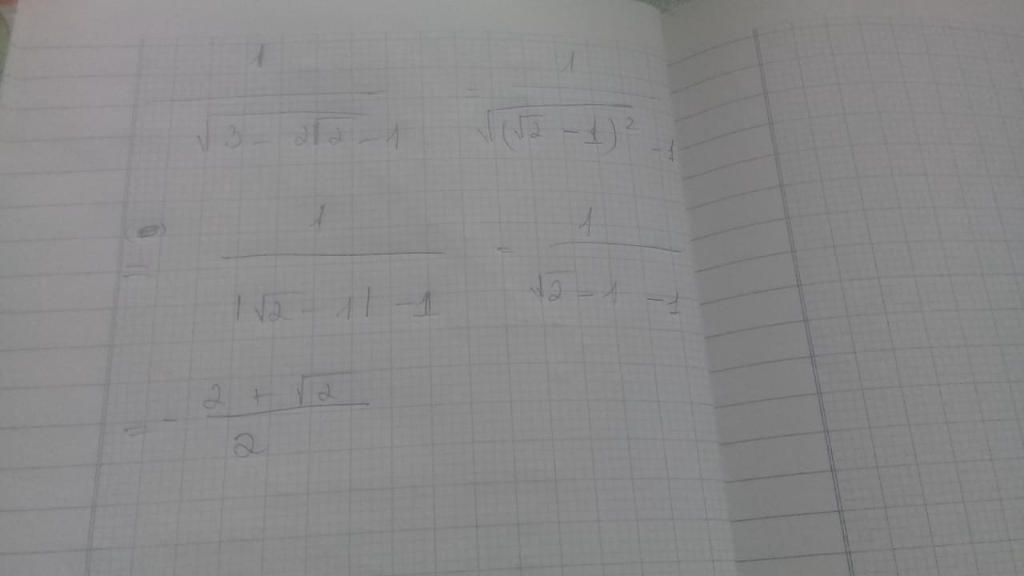 1/(√(3 - 2√2) - 1) = 1/(√((√2 - 1)²) - 1)
= 1/(|√2 - 1| - 1) = 1/(√2 - 1 - 1)
= - (2 + √2)/2